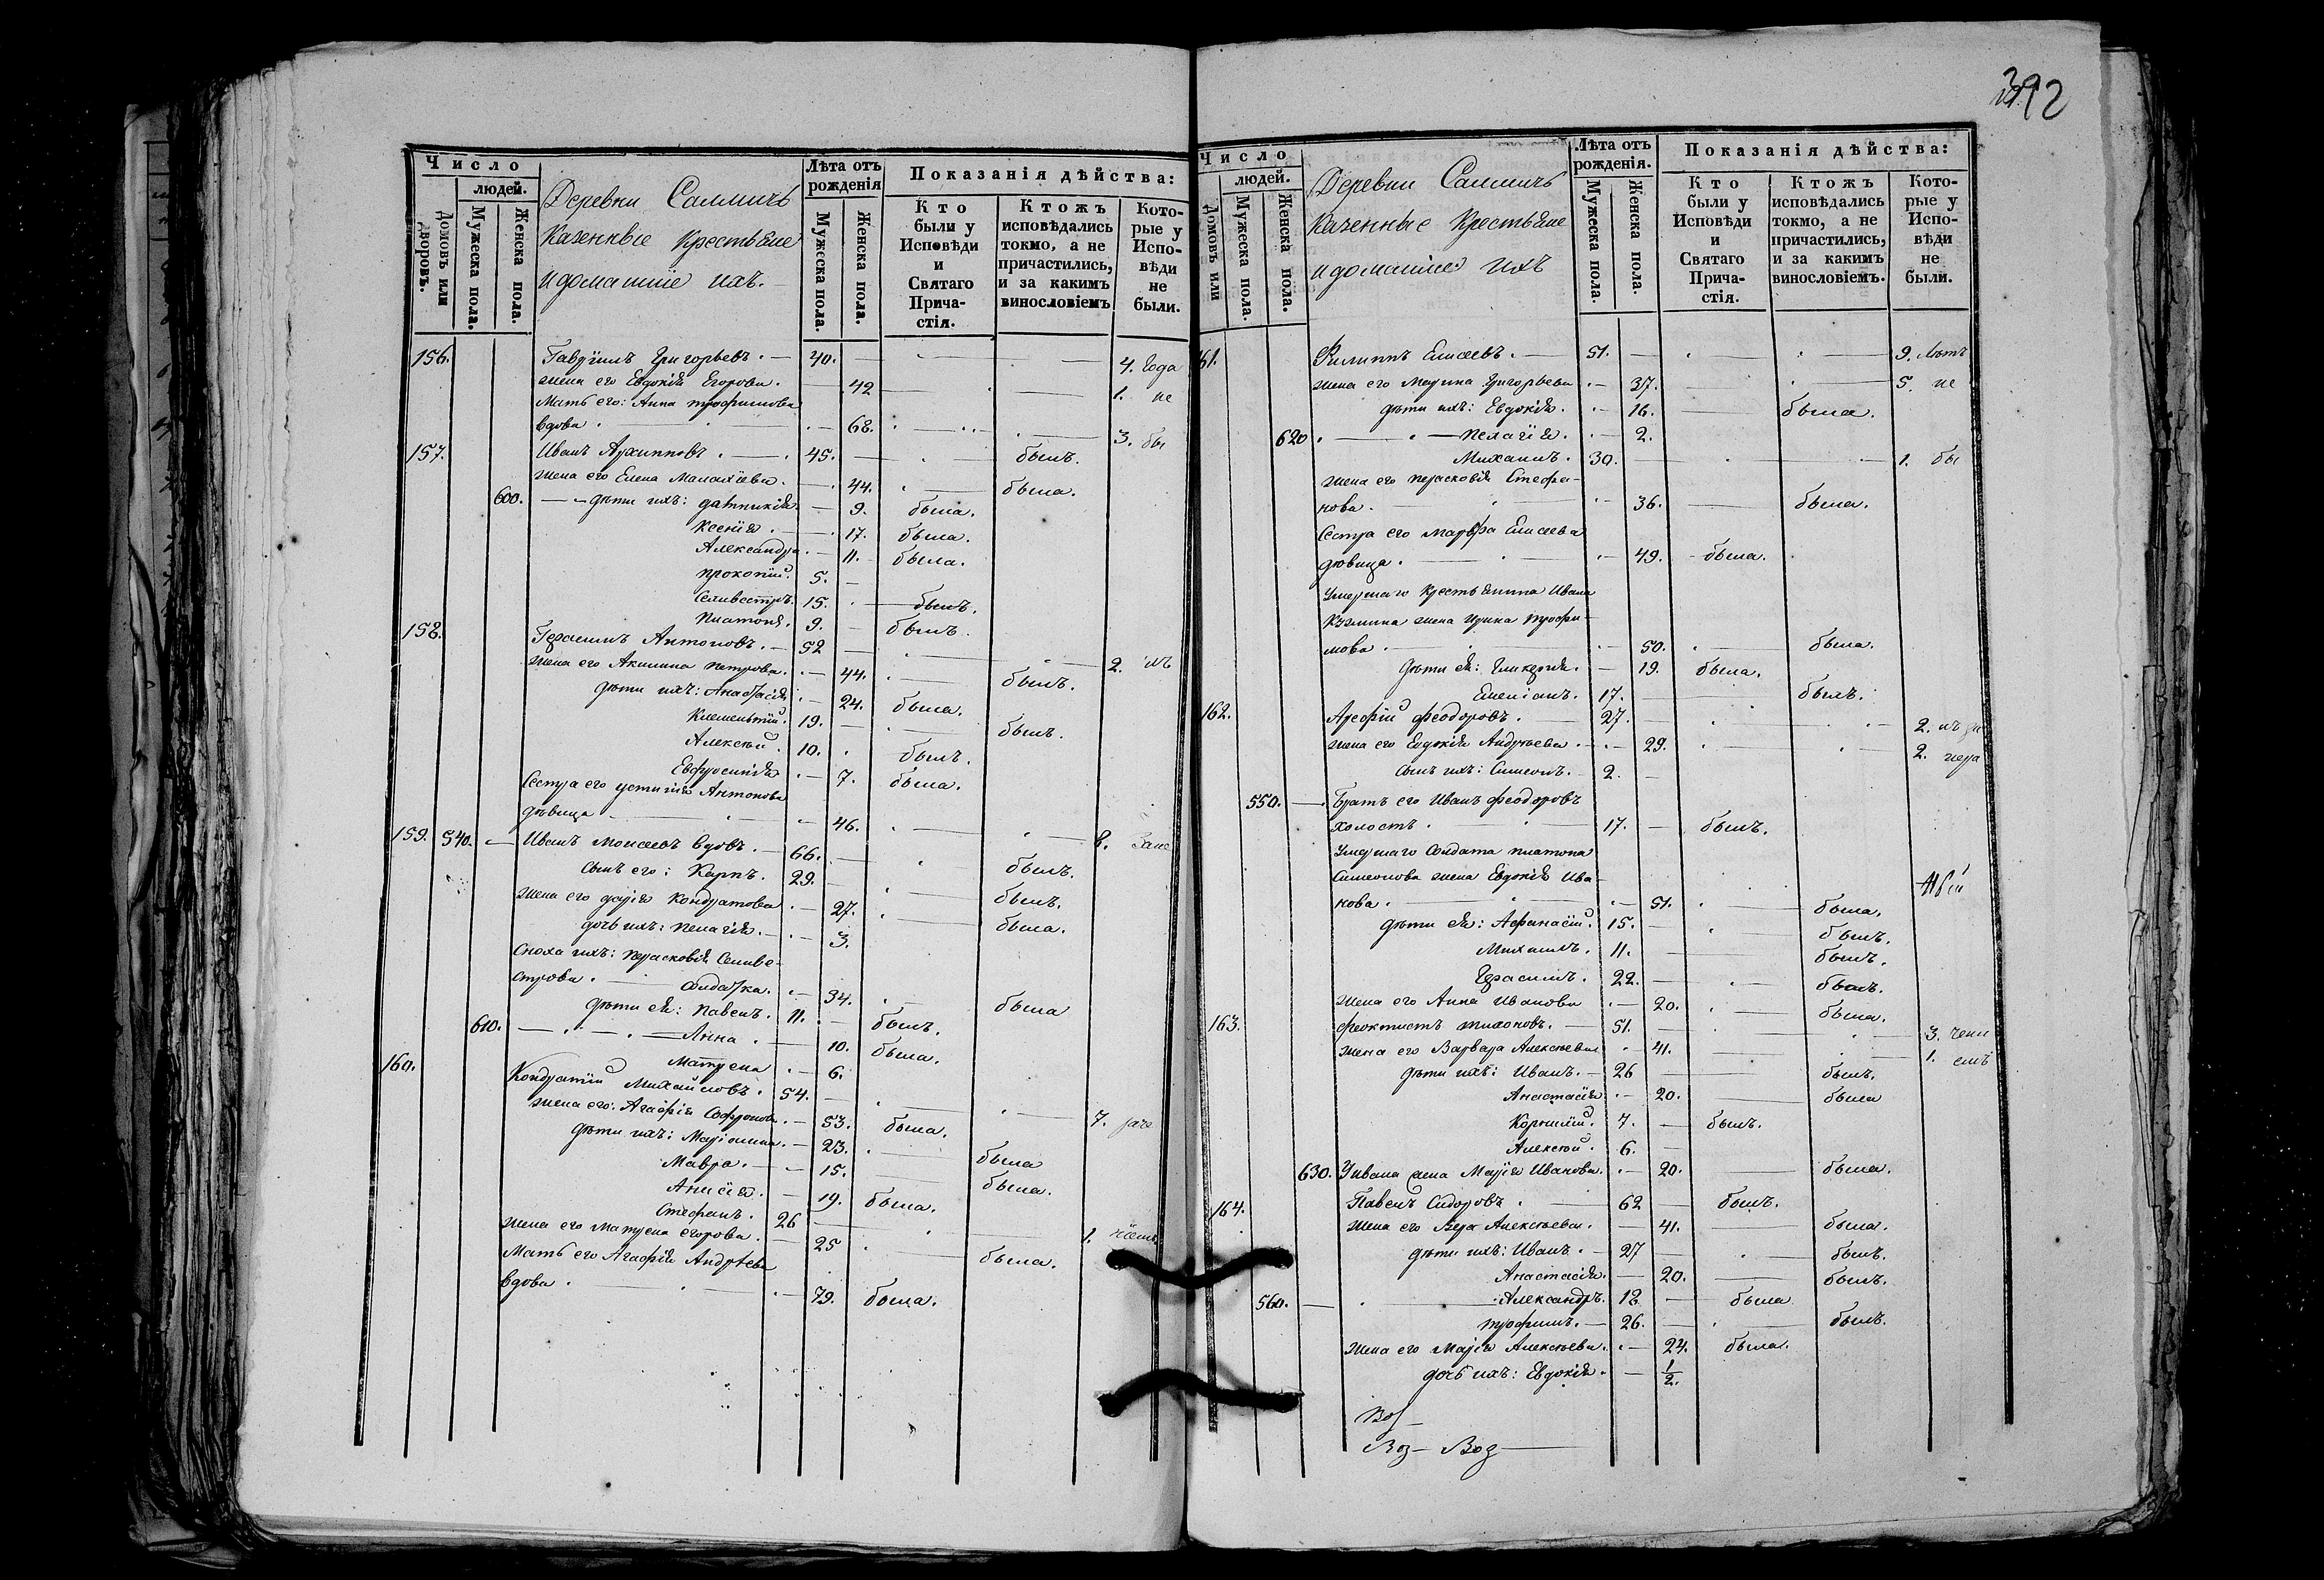 392
Число
людей.
Домовъ или дворовъ.
Мужеска пола.
Женска пола.
Деревни Салмичъ
Казенные крестьяне
и домашніе ихъ.
Лѣта отъ рожденія
Мужеска пола.
Женска пола.
Показанія дѣйства:
Кто были у Исповѣди и Святаго Причастія.
Ктожъ исповѣдались токмо, а не причастились, и за какимъ винословіемъ
Которые у Исповѣди не были.
156. Гавріилъ Григорьевъ. 40. 4. года
жена его Евдокія Егорова. 42 1. не
Мать его: Анна Трофимова
вдова 68. 3. бы
157. Иванъ Архипповъ. 45. былъ.
жена его Елена Малахіева. 44. была.
600. дѣти ихъ: 9. была.
Ксенія. 17. была.
Александра. 11. была.
Прокопій. 5.
Селивестръ. 15. былъ.
Платонъ. 9. былъ.
158. Герасимъ Антоновъ. 52 2. лъ
жена его Акилина Петрова. 44. былъ.
дѣти ихъ: Анастасія 24. была.
Клементій. 19. былъ.
Алексѣй. 10. былъ.
Евфросинія 7. была.
Сестра его Устинія Антонова
дѣвица 46. 8. Зане
159. 540. Иванъ Моисеевъ вдовъ. 66. былъ.
сынъ его: Карпъ. 29. былъ.
жена его Дарія Кондратова 27. была.
дочь ихъ: Пелагія. 3.
Сноха ихъ: Парасковія Селиве-
строва. солдатка. 34. была
дѣти ея: Павелъ. 11. былъ.
610. Анна. 10. была.
Матрена 6.
160. Кондратій Михайловъ. 54. 7. раче
жена его: Агафія Софронова. 53. была.
дѣти ихъ: Маріамна. 23. была
Мавра. 15. была.
Анисія. 19. была.
Стефанъ. 26 1.
жена его Матрена Егорова. 25 была.
Мать его Агафія Андрѣева
вдова. 79. была.
Число
людей.
Домовъ или
Мужеска пола.
Женска пола.
Деревни Салмичъ
Казенные Крестьяне
и домашніе ихъ
Лѣта отъ рожденія.
Мужеска пола.
Женска пола.
Показанія дѣйства:
Кто были у Исповѣди и Святаго Причастія.
Ктожъ исповѣдались токмо, а не причастились, и за какимъ винословіемъ.
Которые у Исповѣди не были.
161. Филиппъ Елисеевъ. 51. 9. Лѣтъ
жена его Марина Григорьева 37. 5. не
дѣти ихъ: Евдокія. 16. была.
620 Пелагія. 2.
Михаилъ. 30. 1. бы
жена его Парасковія Стефа-
нова. 36. была.
Сестра его Марфа Елисеева
дѣвица. 49. была.
Умершаго крестьянина Ивана
Кузмина жена Ирина Трофи-
мова. 50. была.
дѣти ея: Гликерія. 19. была.
Емеліанъ. 17. былъ.
162. Арефій Феодоровъ. 27. 2.
жена его Евдокія Андрѣева. 29. 2.
сынъ ихъ: Симеонъ. 2.
550. Братъ его Иванъ Феодоровъ
холостъ. 17. былъ.
Умершаго Солдата Платона
Симеонова жена Евдокія Ива-
нова. 51. была.
дѣти ея: Афанасій. 15. былъ.
Михаилъ. 11. былъ.
Герасимъ. 22. былъ.
жена его Анна Иванова 20. была.
163. Феоктистъ Тихоновъ. 51. 3.
жена его Варвара Алексѣева 41. 1.
дѣти ихъ: Иванъ. 26 былъ.
Анастасія 20. была
Корнилій. 7. былъ.
Алексѣй. 6.
630. У Ивана жена Марія Иванова. 20. была.
164. Павелъ Сидоровъ. 62 былъ.
жена его Вера Алексѣева. 41. была.
дѣти ихъ: Иванъ. 27 былъ.
Анастасія. 20. былъ.
560. Александръ. 12 была
Трофимъ. 26. былъ.
жена его Марія Алексѣева. 24. была.
дочь ихъ: Евдокія. 1/2.
Воз
Воз Воз